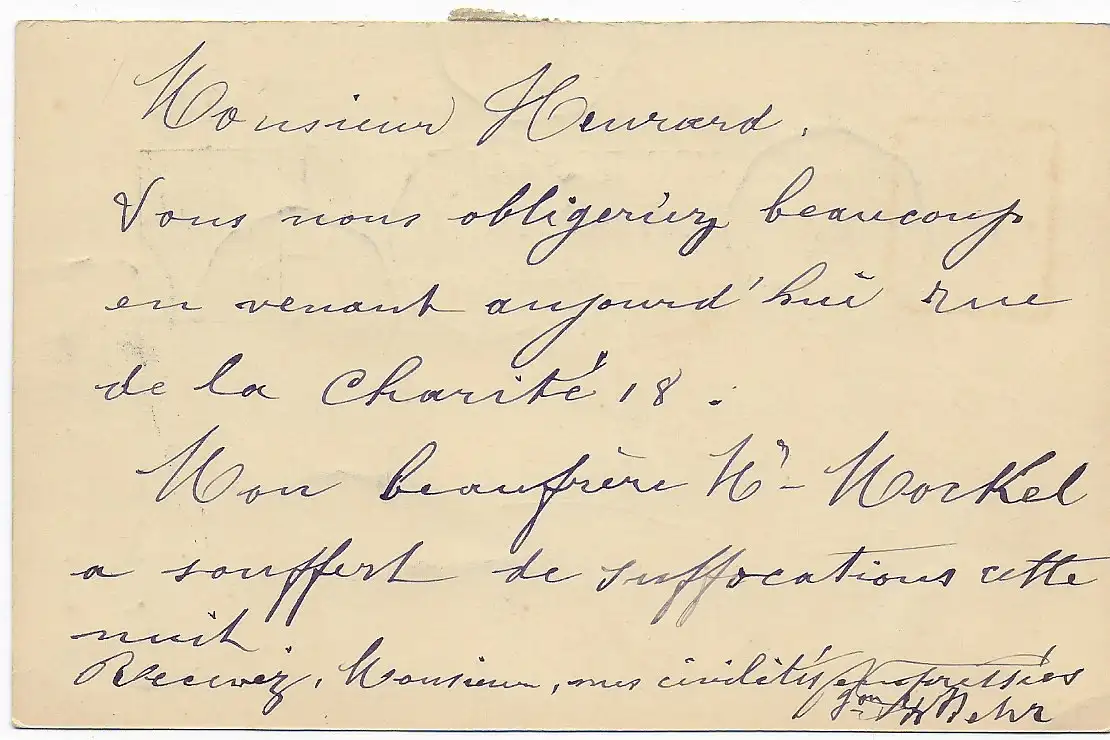 Monsieur Henrard,
Vous nous obligeriez beaucoup
en venant aujourd'hui rue
de la Charité 18.
Mon beaufrère Mr Mockel
a souffert de suffocations cette
nuit
Recevez, Monsieur, mes civilités empressées
Behr